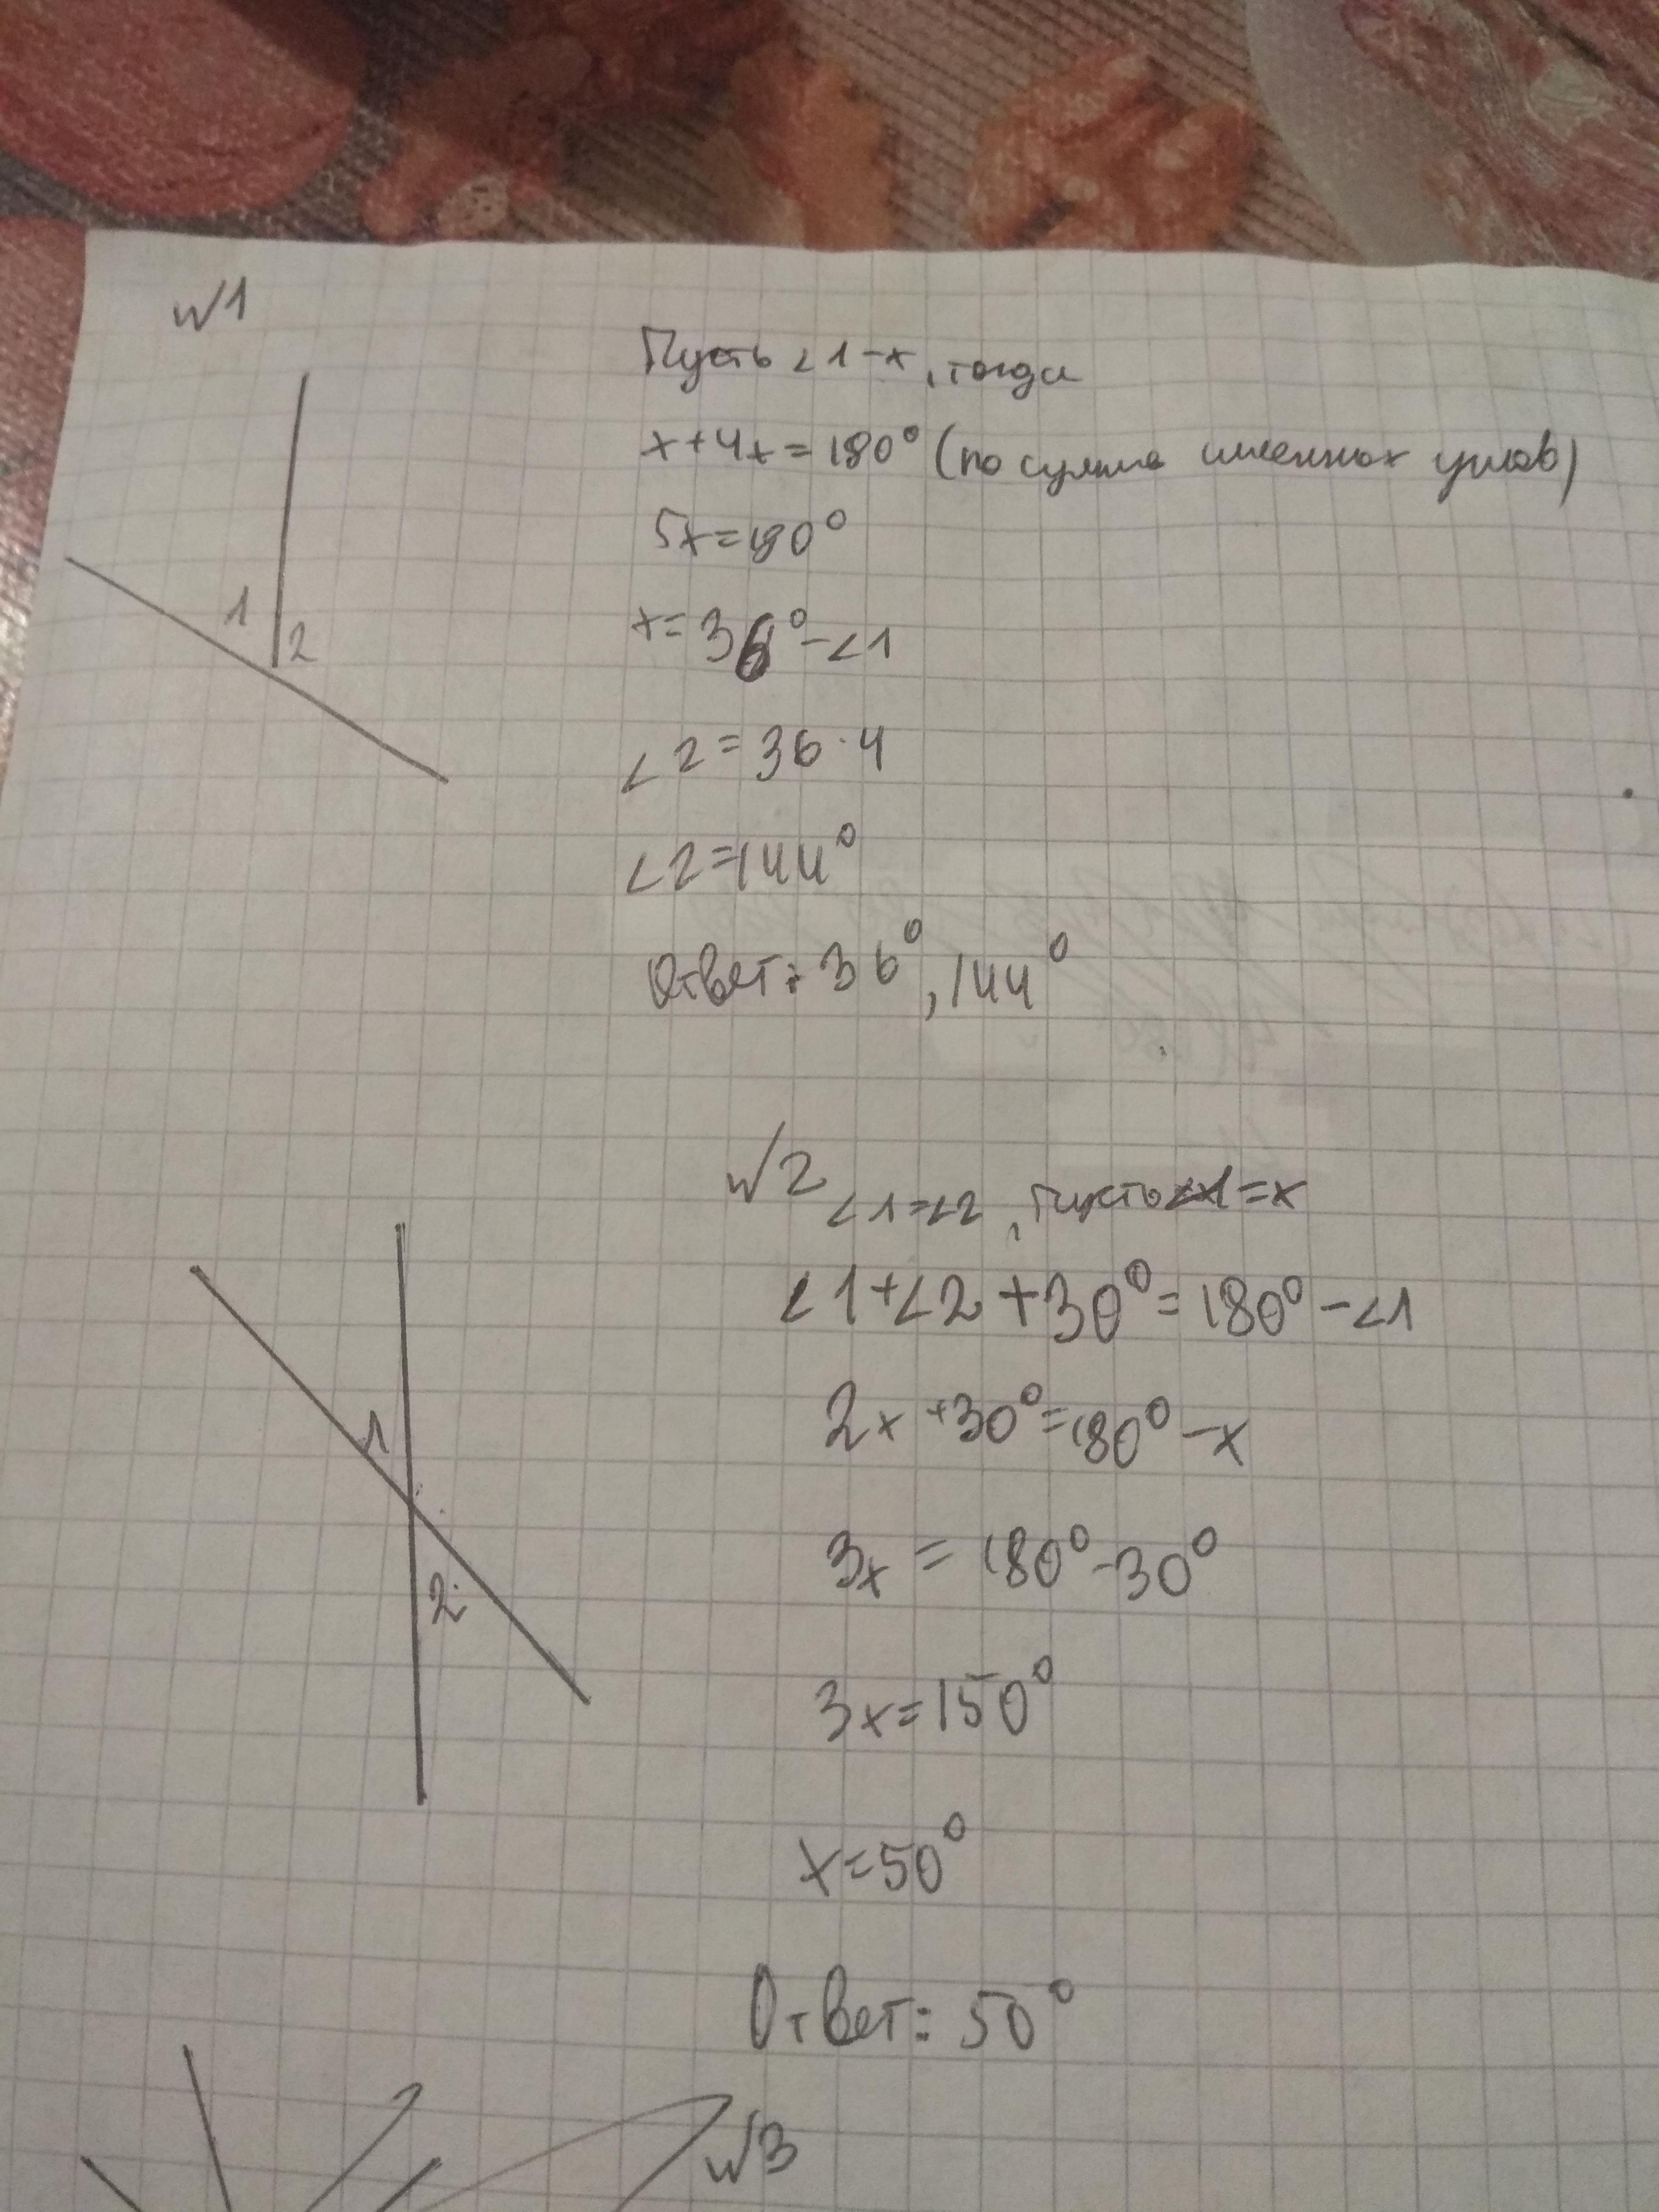 №1
Пусть ∠1-x, тогда
x+4x=180° (по сумме смежных углов)
5x=180°
x=36°-∠1
∠2=36·4
∠2=144°
Ответ: 36°, 144°
1
2
№2
∠1=∠2, Пусть ∠1=x
∠1+∠2+30°=180°-∠1
2x+30°=180°-x
3x=180°-30°
3x=150°
x=50°
Ответ: 50°
1
2
№3